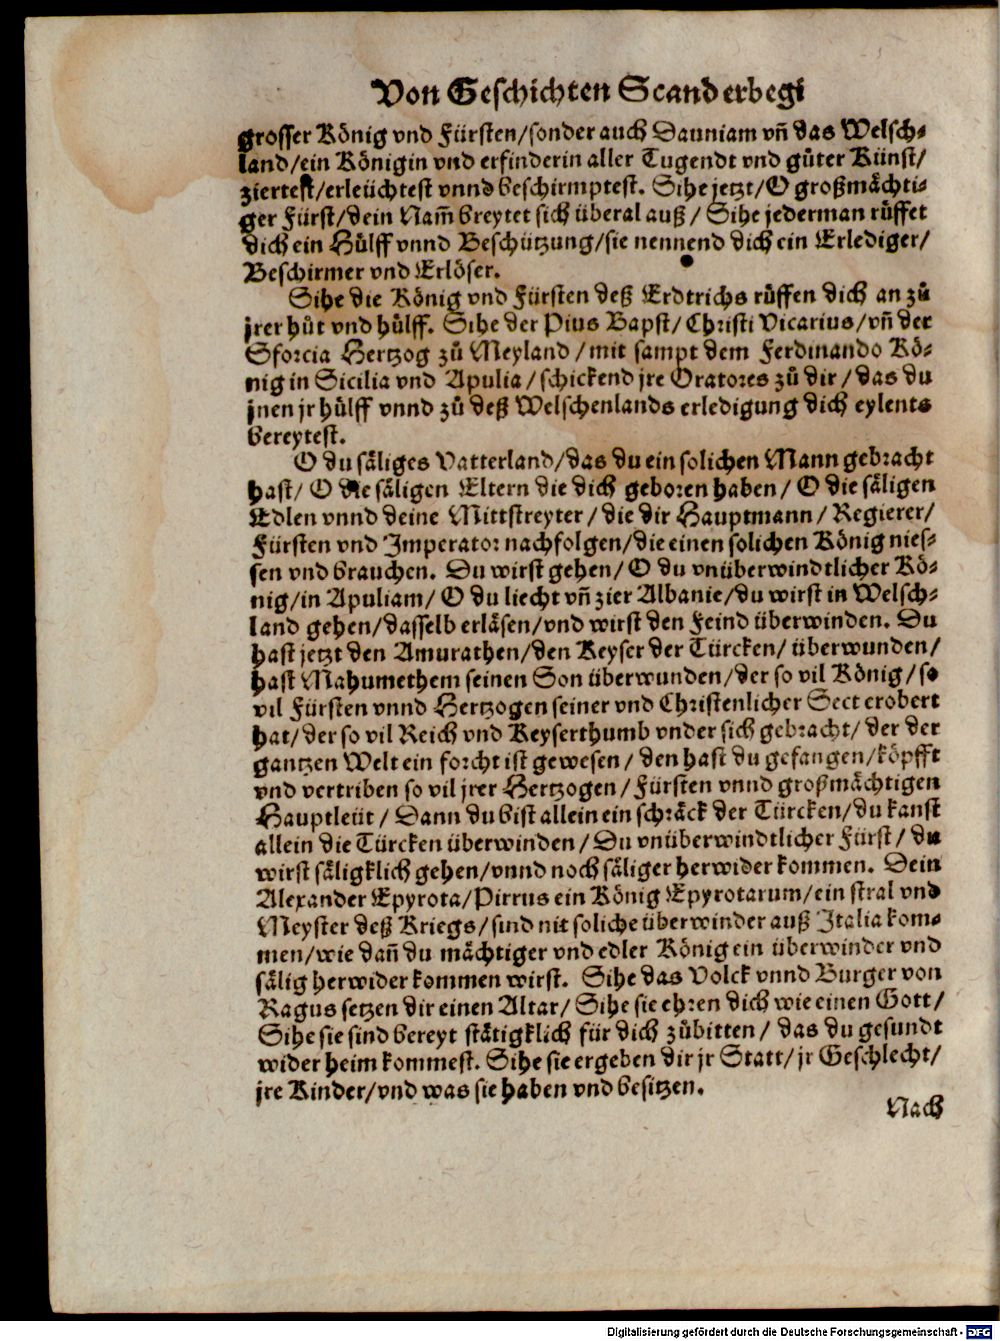 Von Geschichten Scanderbegi
grosser König vnd Fürsten/sonder auch Dauniam vñ das Welsch⸗
land/ein Königin vnd erfinderin aller Tugendt vnd gůter Künst/
ziertest/erleüchtest vnnd beschirmptest. Sihe jetzt/O großmächti⸗
ger Fürst/dein Nam̃ breytet sich überal auß/ Sihe jederman růffet
dich ein Hülff vnnd Beschützung/sie nennend dich ein Erlediger/
Beschirmer vnd Erlöser.
Sihe die König vnd Fürsten deß Erdtrichs růffen dich an zů
jrer hůt vnd hülff. Sihe der Pius Bapst/ Christi Vicarius/vñ der
Sforcia Hertzog zů Meyland /mit sampt dem Ferdinando Kö⸗
nig in Sicilia vnd Apulia /schickend jre Oratores zů dir /das du
jnen jr hülff vnnd zů deß Welschenlands erledigung dich eylents
bereytest.
O du säliges Vatterland/das du ein solichen Mann gebracht
hast/ O die säligen Eltern die dich geboren haben/ O die säligen
Edlen vnnd deine Mittstreyter /die dir Hauptmann/ Regierer/
Fürsten vnd Imperator nachfolgen/die einen solichen König nies⸗
sen vnd brauchen. Du wirst gehen/ O du vnüberwindtlicher Kö⸗
nig/in Apuliam/ O du liecht vñ zier Albanie/du wirst in Welsch⸗
land gehen/dasselb erläsen/vnd wirst den Feind überwinden. Du
hast jetzt den Amurathen/den Keyser der Türcken/ überwunden/
hast Mahumethem seinen Son überwunden/der so vil König/so
vil Fürsten vnnd Hertzogen seiner vnd Christenlicher Sect erobert
hat/der so vil Reich vnd Keyserthumb vnder sich gebracht/ der der
gantzen Welt ein forcht ist gewesen/ den hast du gefangen/köpfft
vnd vertriben so vil jrer Hertzogen/ Fürsten vnnd großmächtigen
Hauptleüt / Dann du bist allein ein schräck der Türcken/du kanst
allein die Türcken überwinden/ Du vnüberwindtlicher Fürst/ du
wirst säligklich gehen/vnnd noch säliger herwider kommen. Dein
Alexander Epyrota/Pirrus ein König Epyrotarum/ein stral vnd
Meyster deß Kriegs/sind nit soliche überwinder auß Italia kom⸗
men/wie dañ du mächtiger vnd edler König ein überwinder vnd
sälig herwider kommen wirst. Sihe das Volck vnnd Burger von
Ragus setzen dir einen Altar/ Sihe sie ehren dich wie einen Gott/
Sihe sie sind bereyt stätigklich für dich zůbitten/ das du gesundt
wider heim kommest. Sihe sie ergeben dir jr Statt/ jr Geschlecht/
jre Kinder/vnd was sie haben vnd besitzen.
Nach
Digitalisierung gefördert durch die Deutsche Forschungsgemeinschaft - DFG